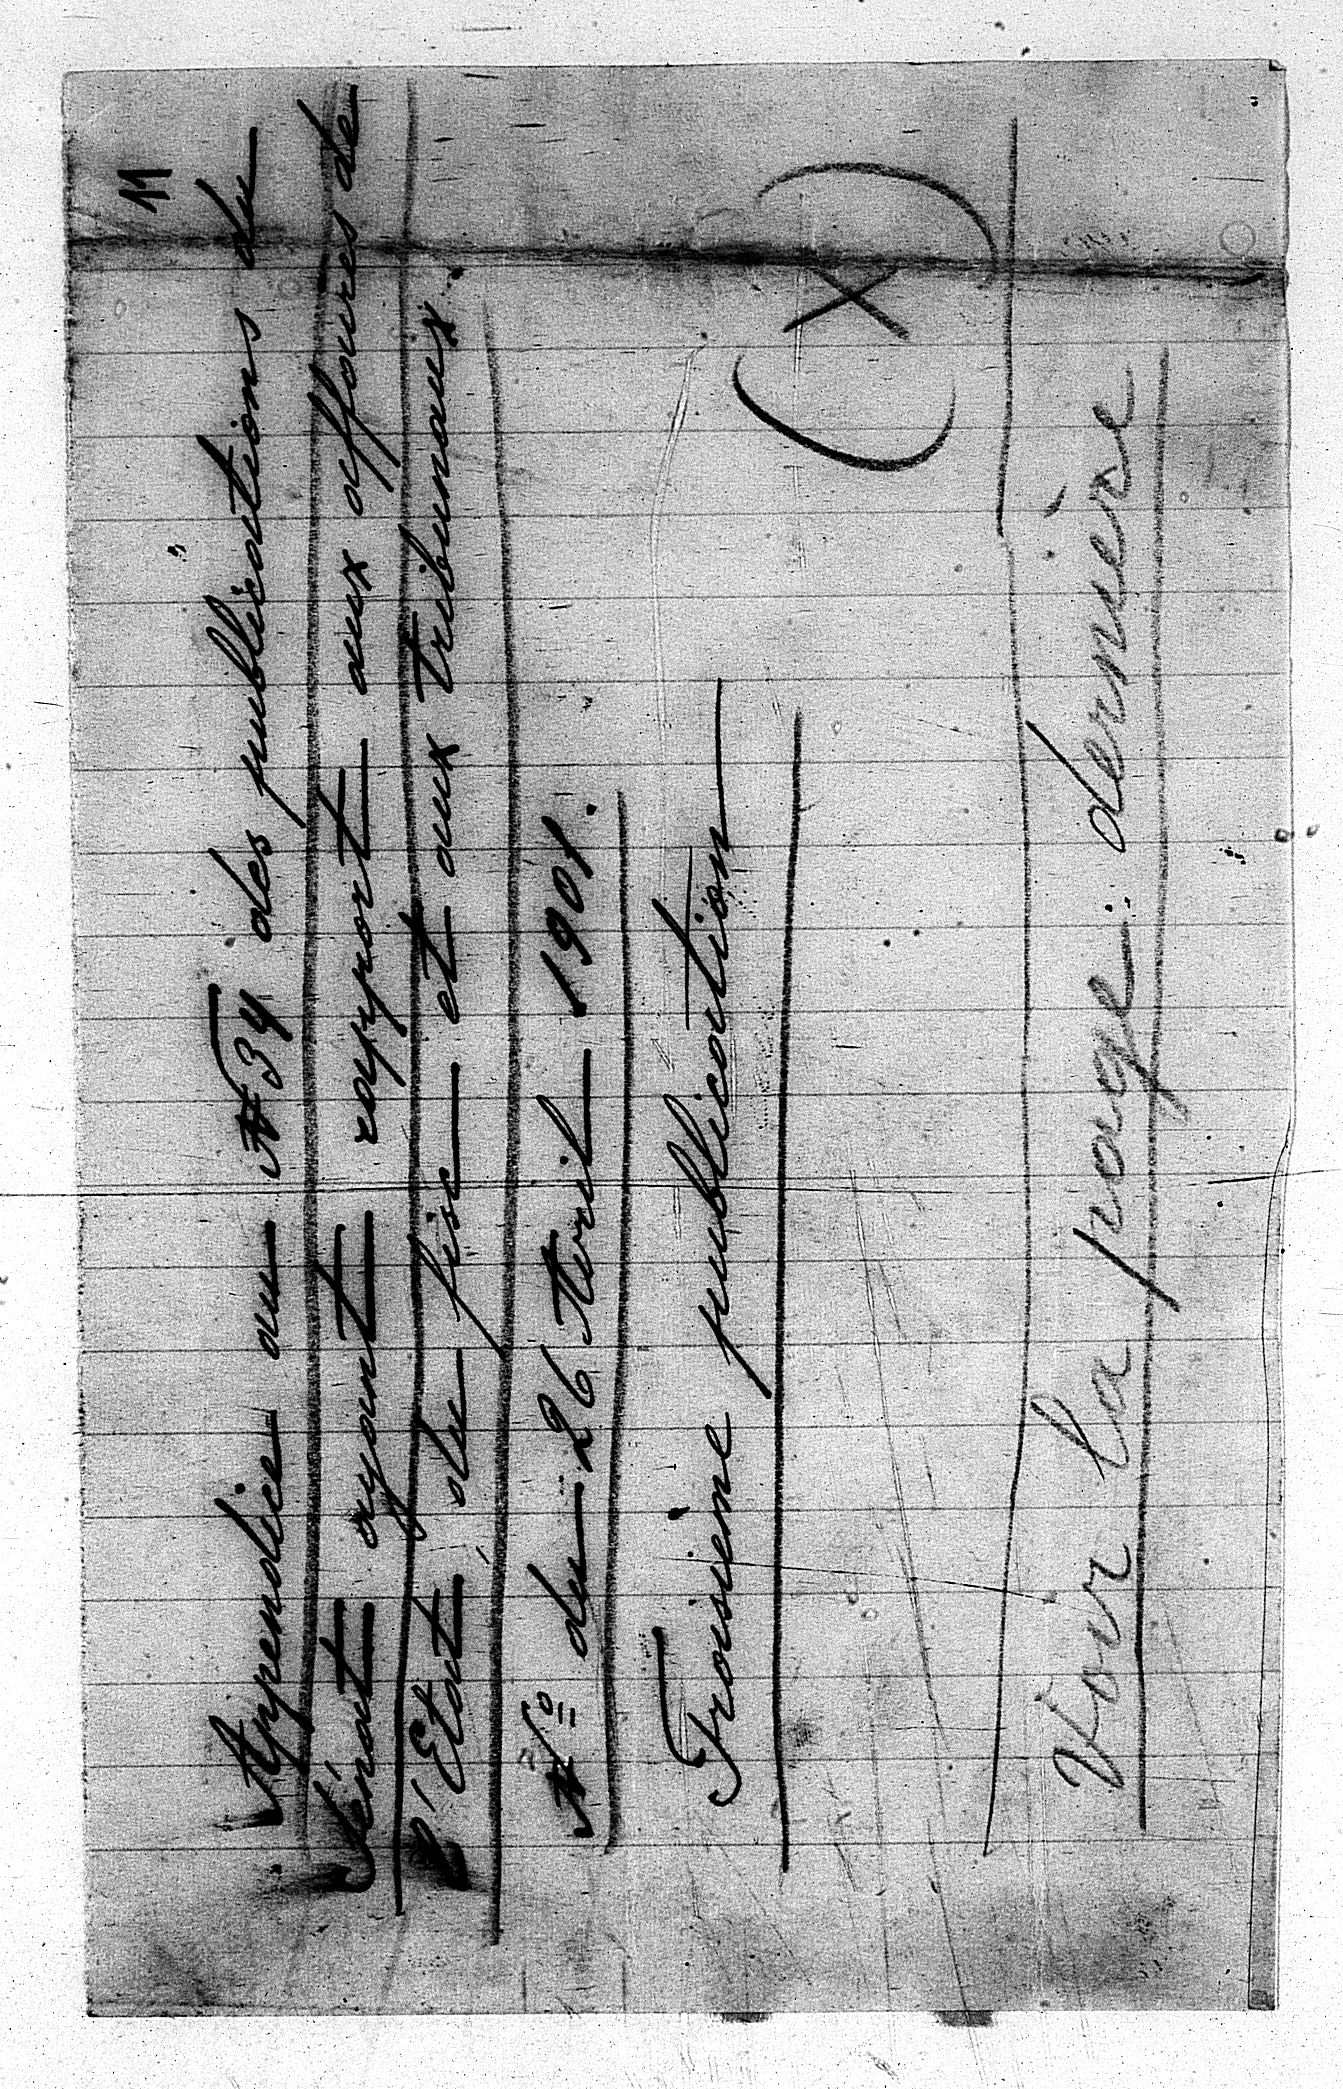 11
Appendice au N 34 des publications du
Sénat ayant rapport aux affaires de
l'Etat, du fisc et aux tribunaux.
Nº du 26 Avril 1901.
Troisième publication
(X)
Voir la page dernière